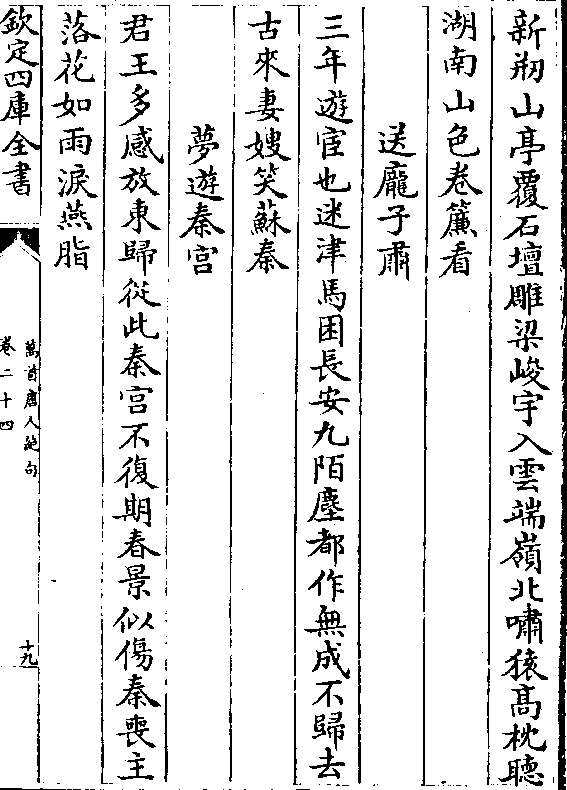 新刱山亭覆石壇雕梁峻宇入雲端嶺北嘯猿高枕聽
湖南山色卷簾看
送龐子肅
三年遊宦也迷津馬困長安九陌塵都作無成不歸去
古來妻嫂笑蘇秦
夢遊秦宮
君王多感放東歸從此秦宮不復期春景似傷秦喪主
落花如雨淚燕脂
欽定四庫全書
萬首唐人絶句
卷二十四
十九